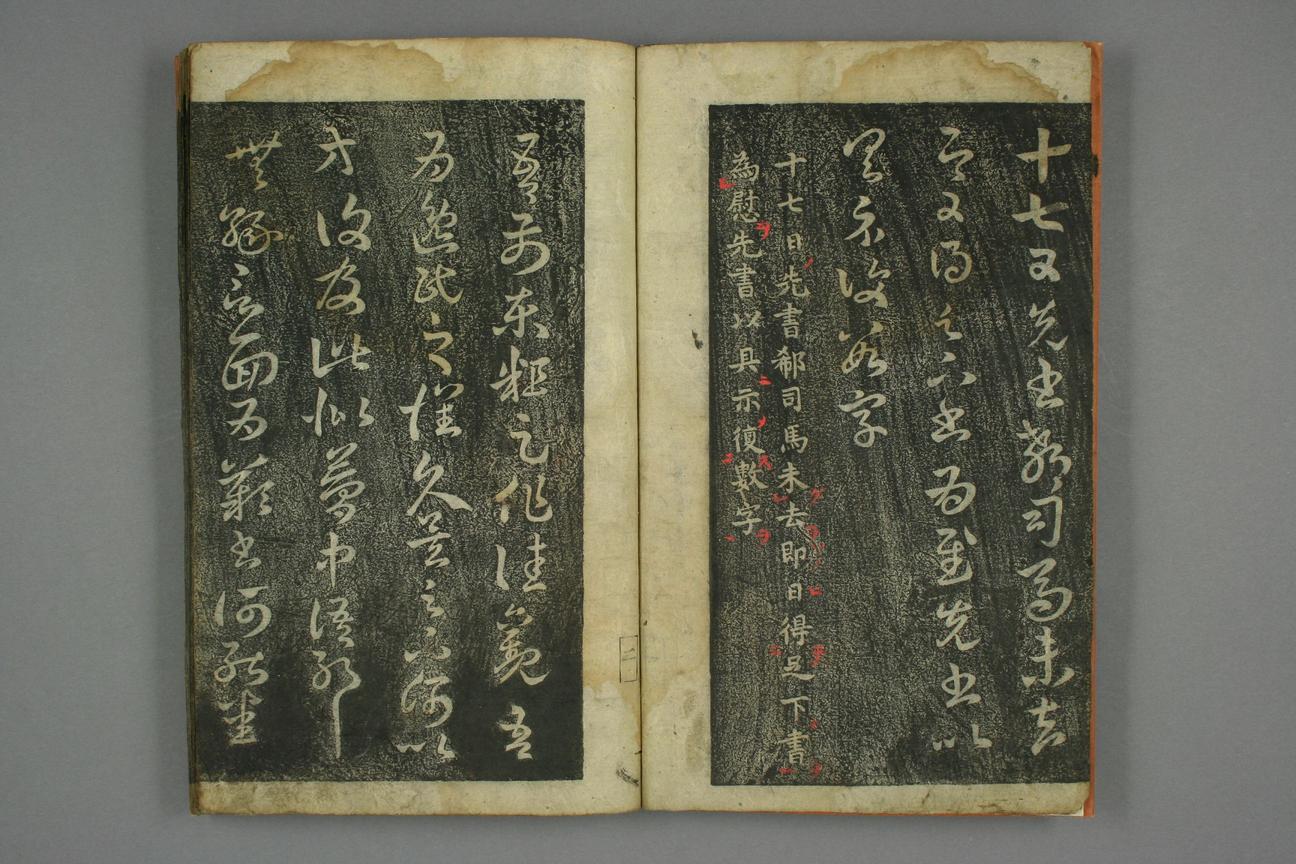 十七日先書郗司馬未去
即日得足下書為慰先書以
具示復數字
十七日先書郗司馬未去即日得足下書
為慰先書以具示復數字
二
吾前東粗足作佳觀吾
為逸民之懷久矣足下何以
方復及此似夢中語耶
無緣言面為歎書何能悉